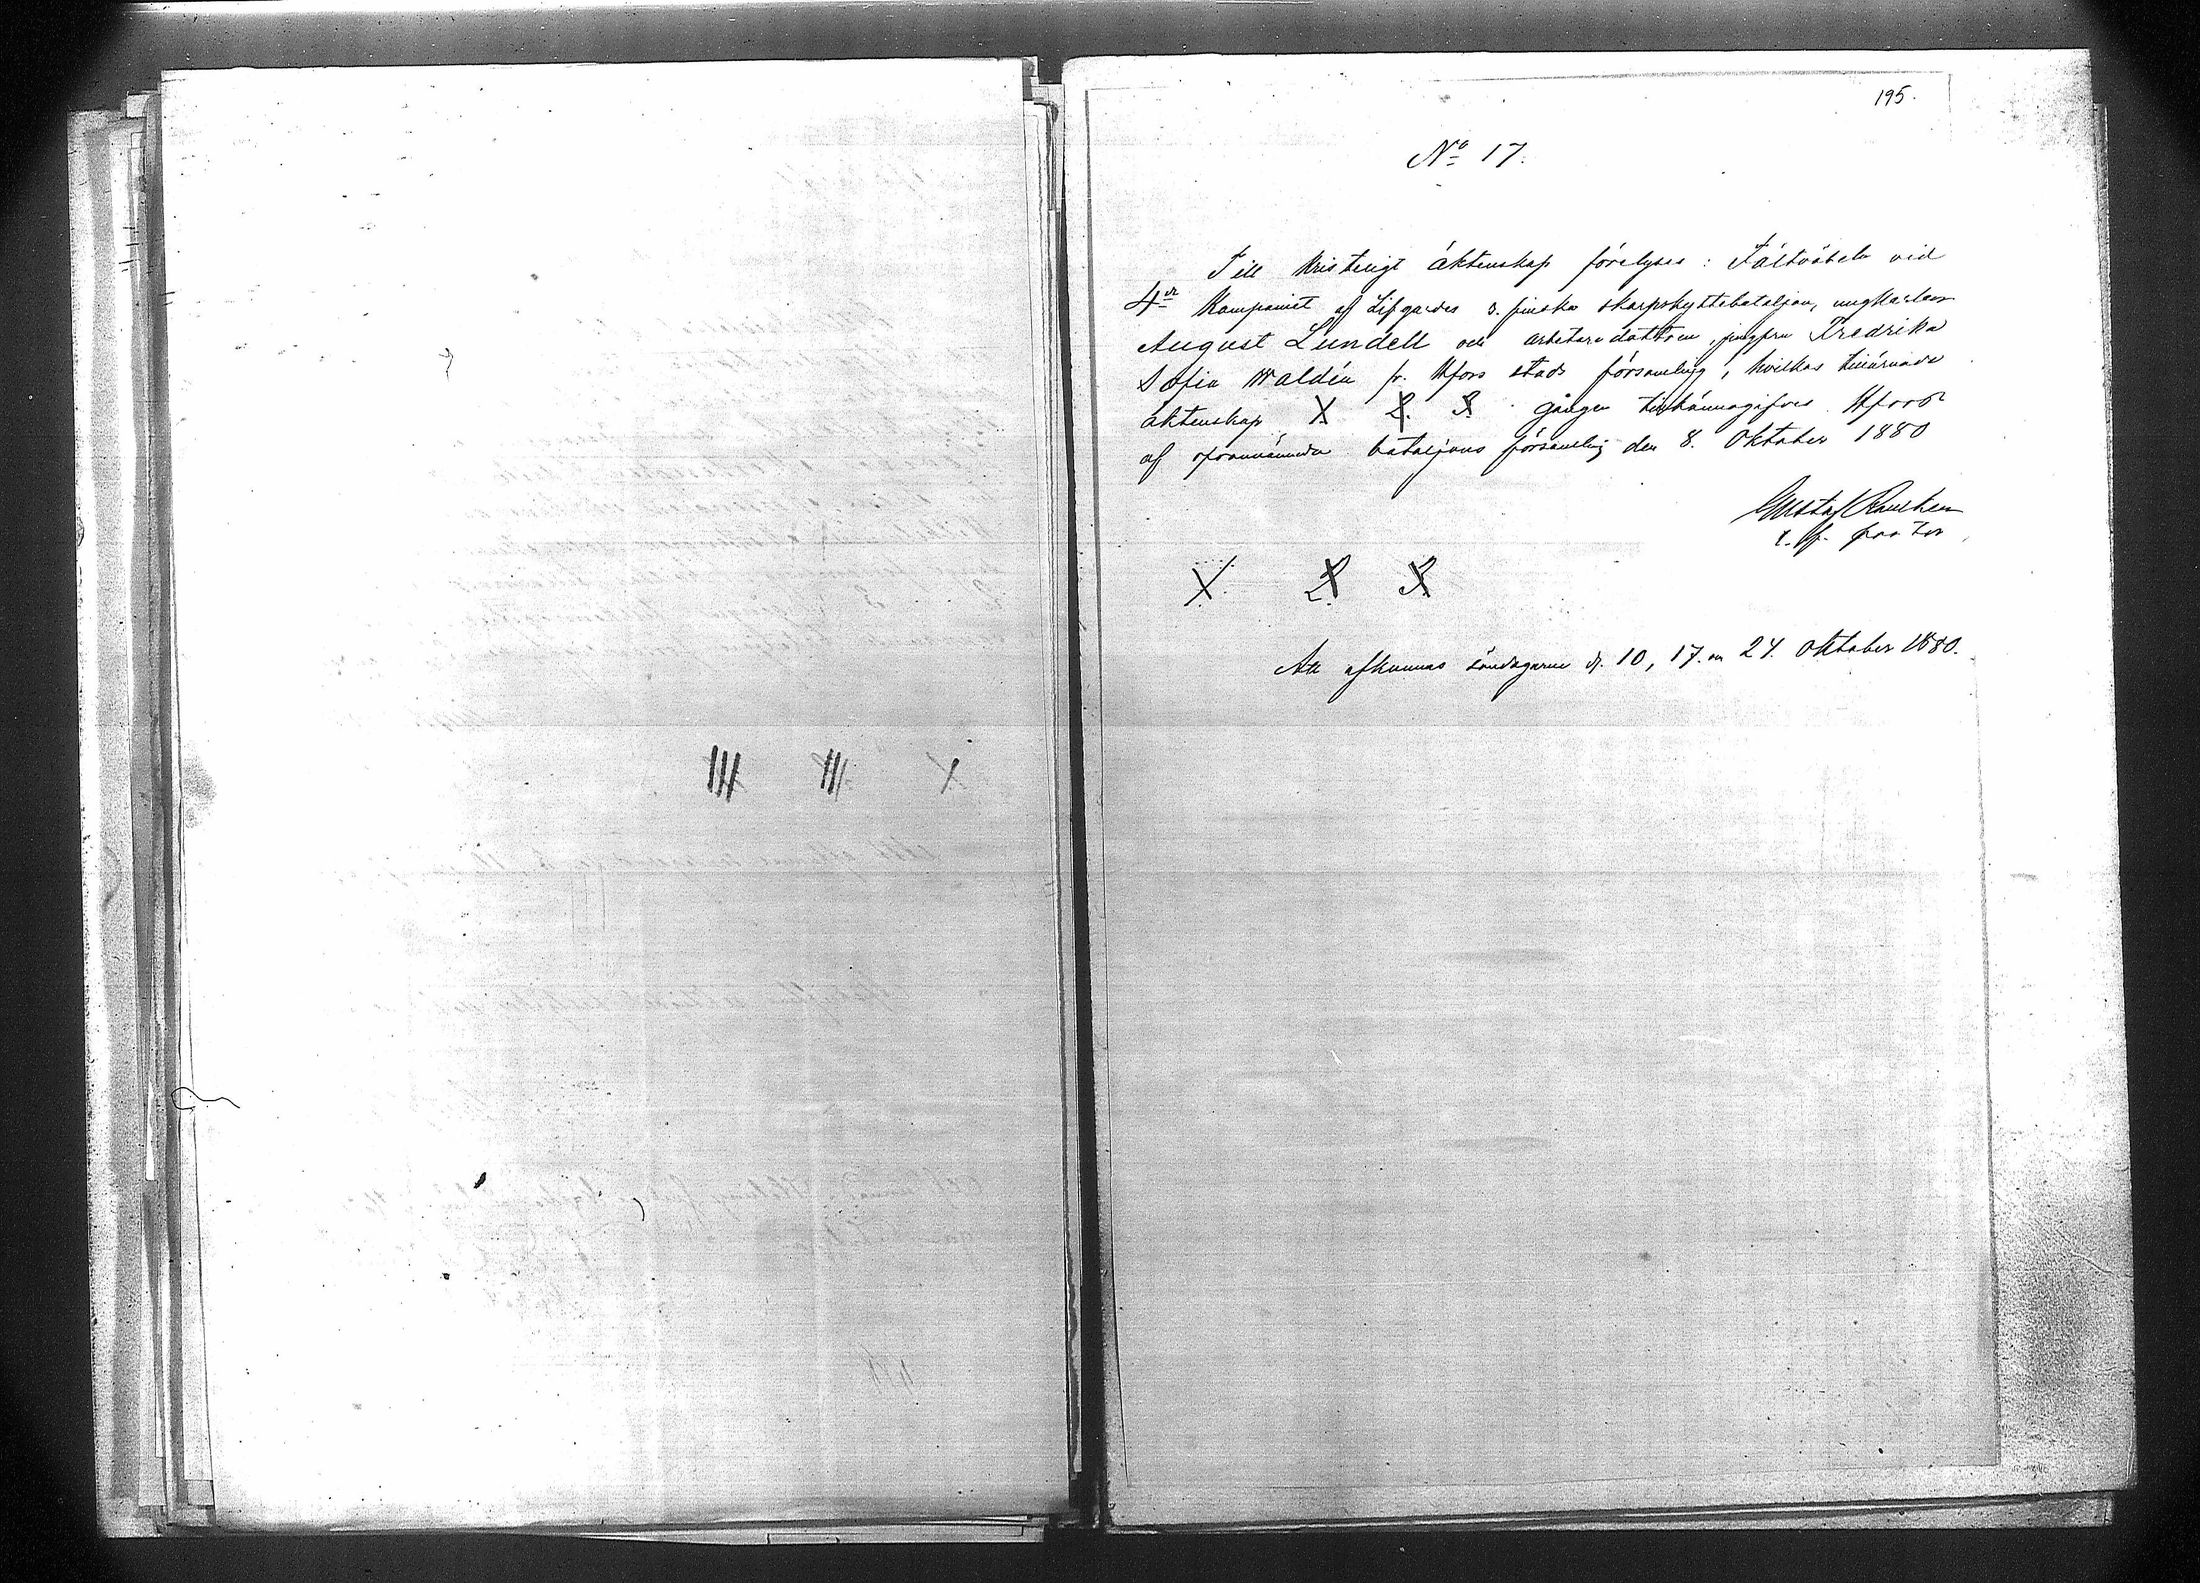 195.
No 17.
Till kristeligt äktenskap förelyses: Fältväbeln vid
4de Kompaniet af Lifgardes 3. finska skarpskyttebataljon, ungkarlen
August Lundell och arbetaredottren, jungfru Fredrika
Sofia Waldén fr. Hfors stads församling, hvilkas tillärnade
äktenskap 1. 2. 3. gången tillkännagifves. Hfors
af ofvannämnda bataljons församling den 8. Oktober 1880
Gustaf
t. f. pastor
1. 2. 3.
Att afkunnas söndagarne d. 10, 17. o 24. Oktober 1880.